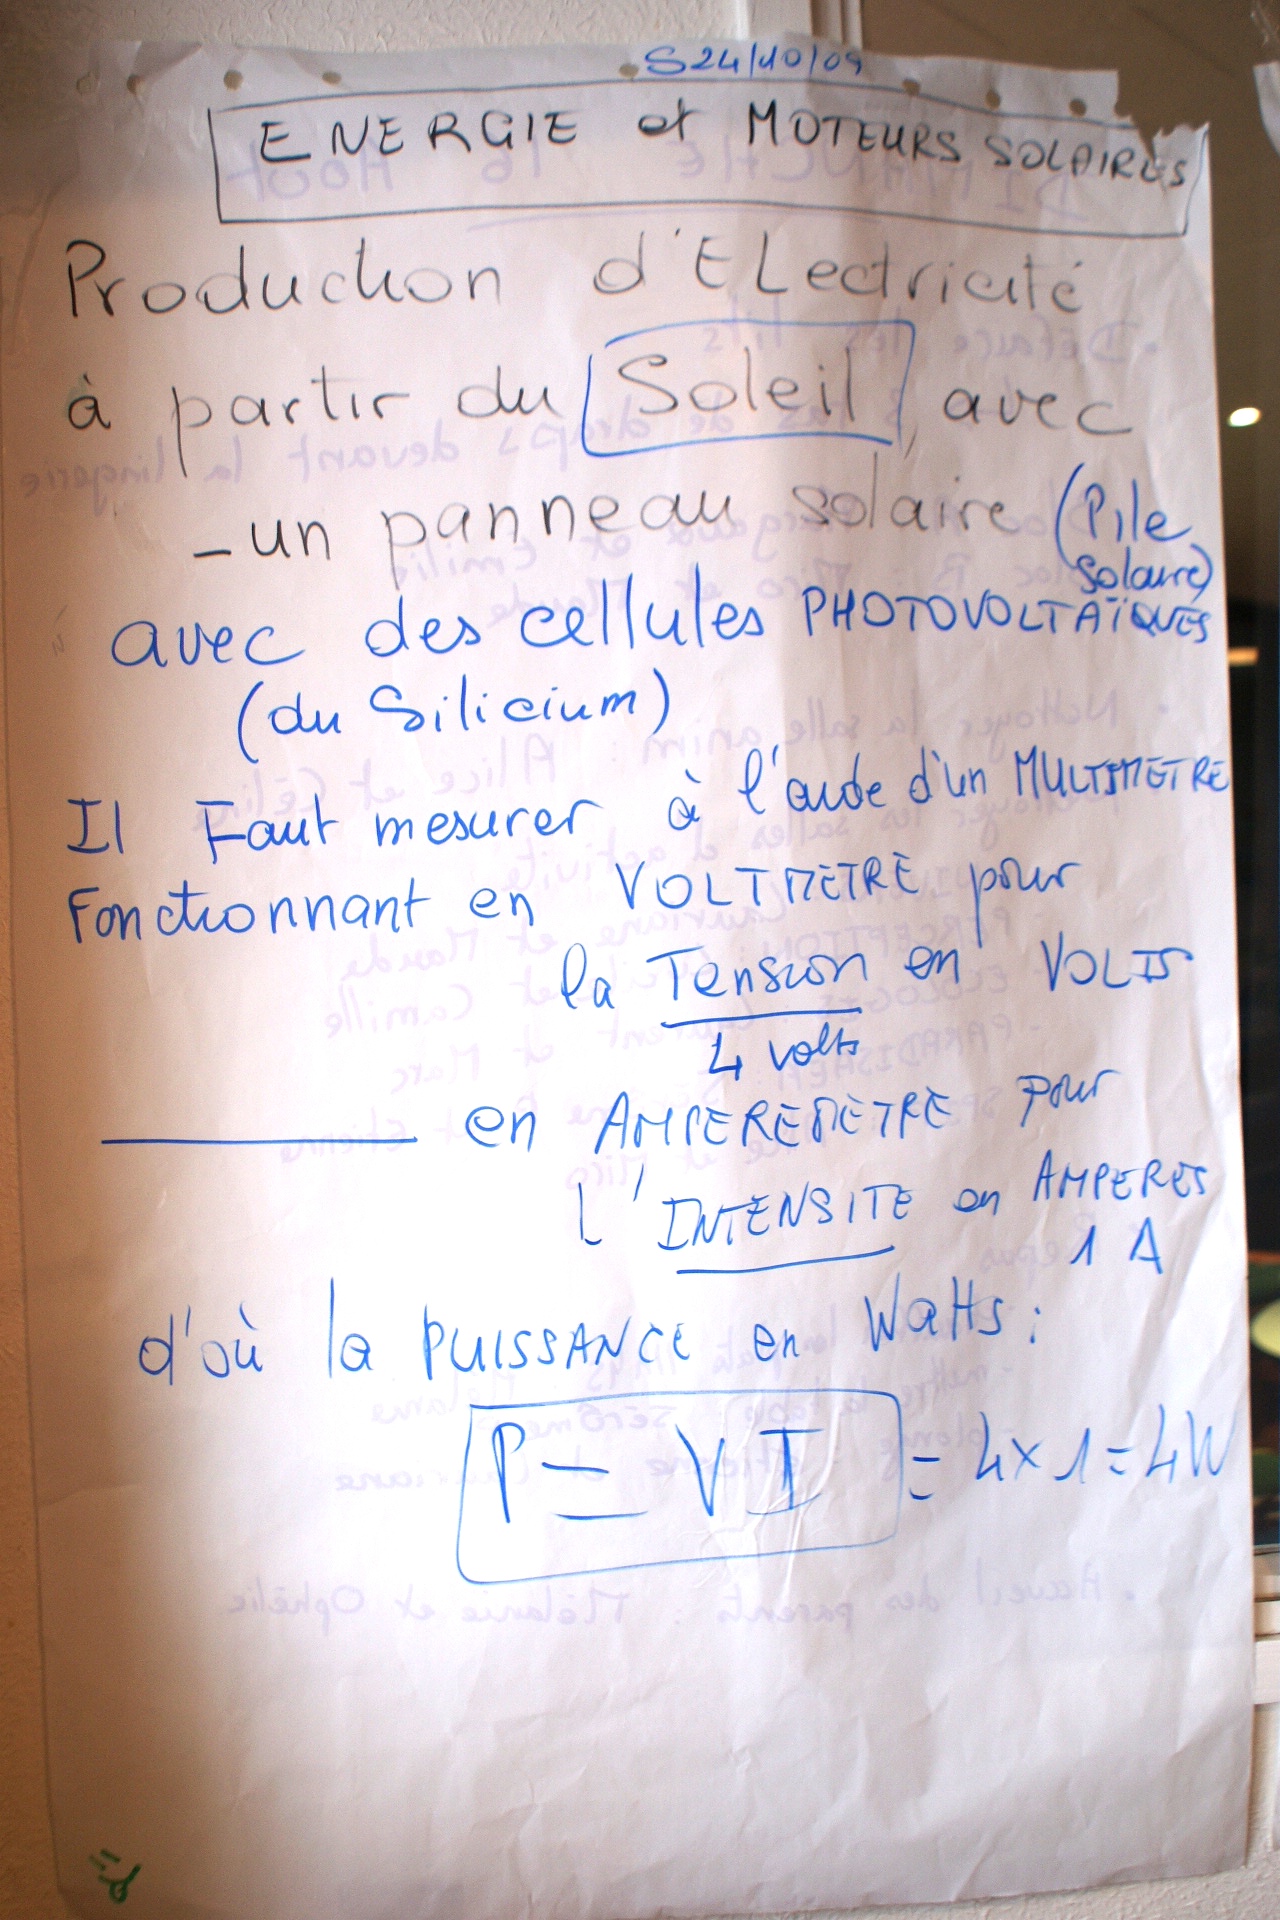 S24/10/09
ENERGIE et MOTEURS SOLAIRES
Production d'ELectricité
à partir du Soleil avec
- un panneau solaire (Pile
solaire)
avec des cellules PHOTOVOLTAÏQUES
(du Silicium)
Il Faut mesurer à l'aide d'un MULTIMETRE
Fonctionnant en VOLTMETRE pour
la Tension en VOLTS
4 volts
en AMPEREMETRE pour
L'INTENSITE en AMPERES
1 A
d'où la PUISSANCE en Watts :
P = VI = 4 x 1 = 4W